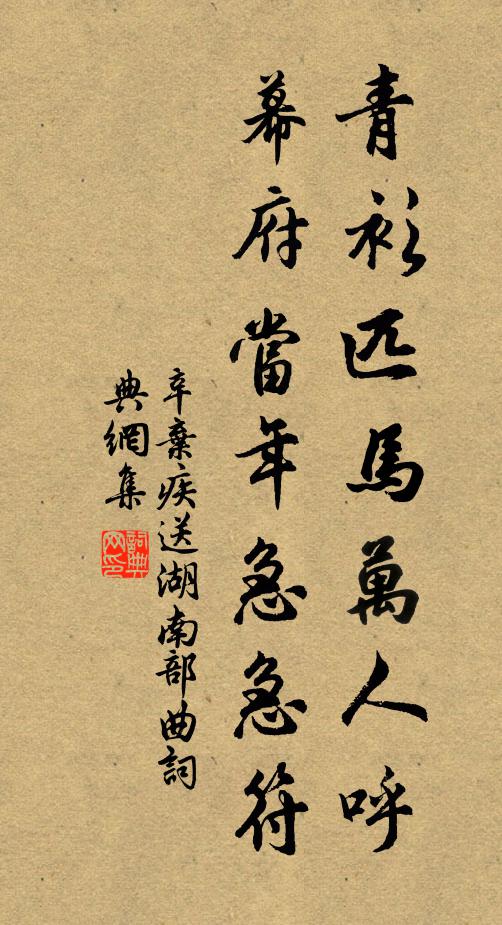 青衫匹馬萬人呼
幕府當年急急符
辛棄疾送湖南部曲詞
典網集
詞典
网印